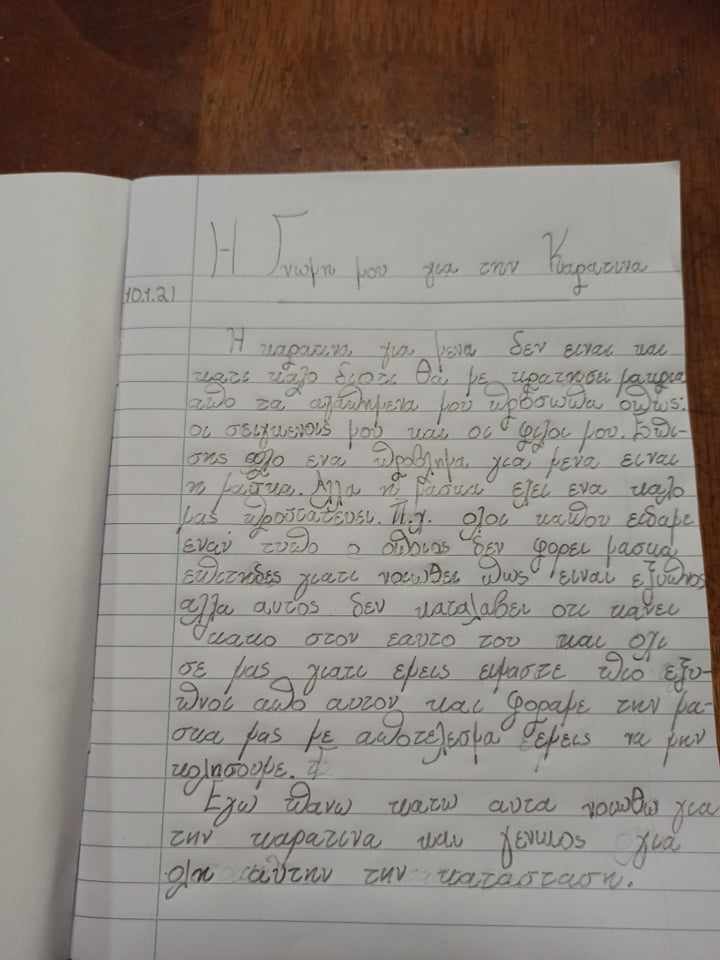 Η Γνωμη μου για την Καρατινα
10.1.21
Η καρατινα για μενα δεν ειναι και
κατι καλο διοτι θα με κρατησει μακρια
απο τα αγαπημενα μου προσωπα οπως:
οι σειγκενοις μου και οι φιλοι μου. Επι-
σης αλο ενα προβλημα για μενα ειναι
η μασκα. Αλλα η μασκα εχει ενα καλο
μας προστατευει. Π.χ. ολοι καπου ειδαμε
εναν τυπο ο οποιος δεν φορει μασκα
επιτηδες γιατι νοιωθει πως ειναι εξυπνος
αλλα αυτος δεν καταλαβει οτι κανει
κακο στον εαυτο του και οχι
σε μας γιατι εμεις ειμαστε πιο εξυ-
πνοι απο αυτον και φοραμε την μα-
σκα μας με αποτελεσμα εμεις να μην
κολησουμε.
Εγω πανω κατω αυτα νοιωθω για
την καρατινα και γενικος για
ολη αυτην την κατασταση.